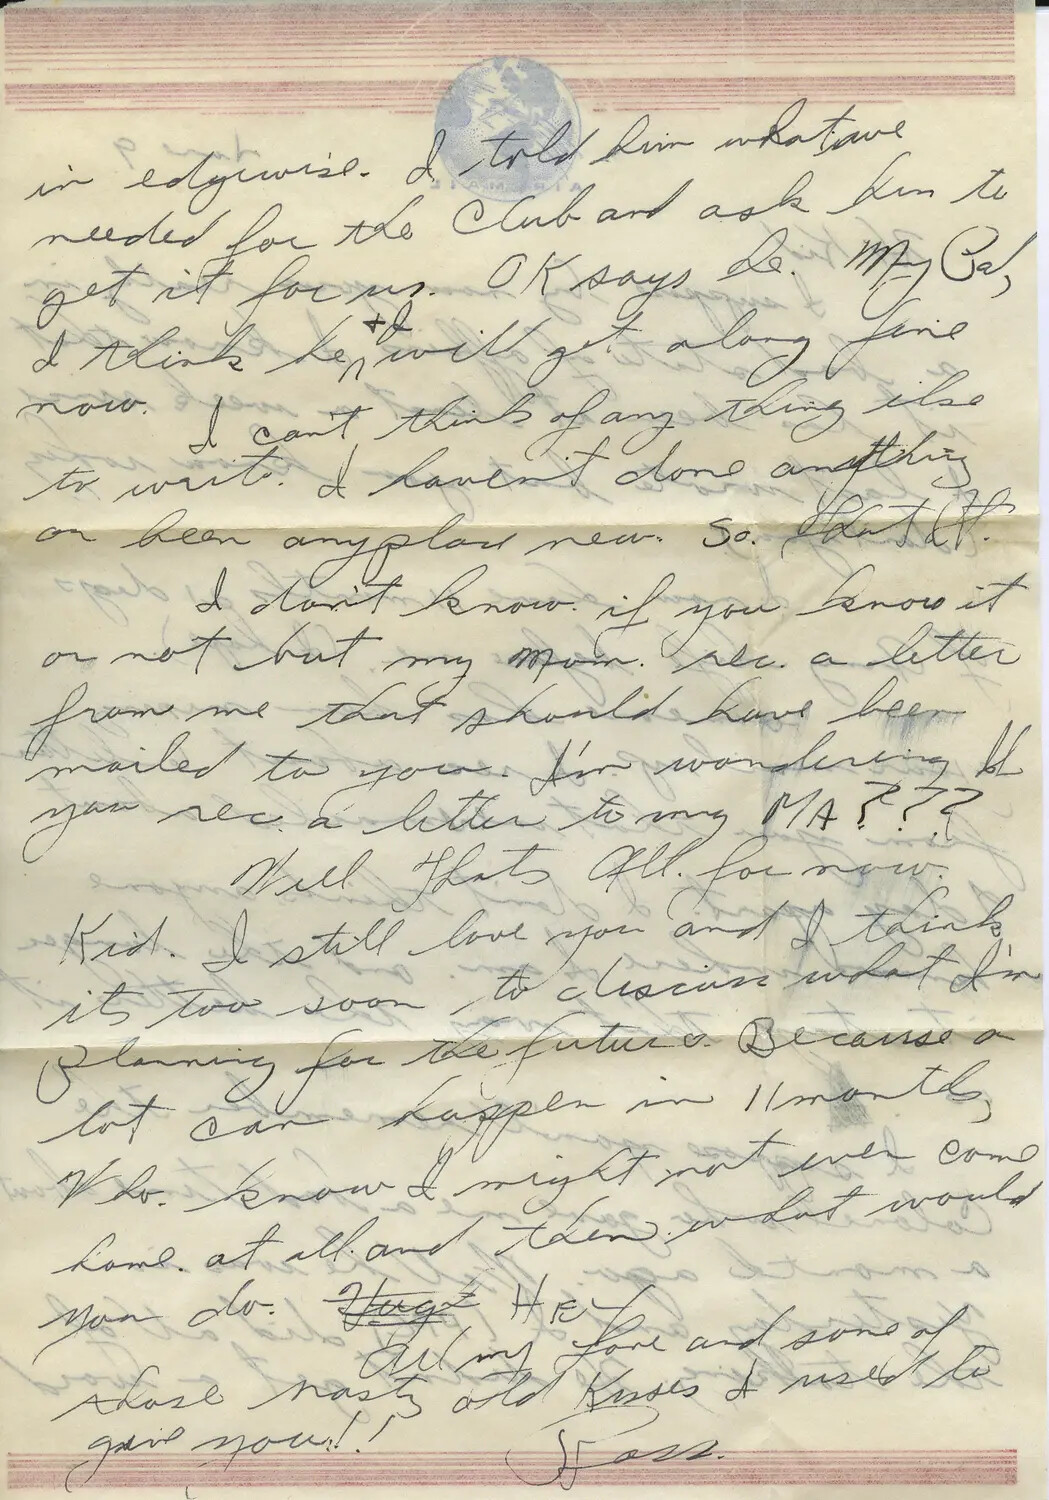 in edgewise. I told him what we
needed for the Club and ask him to
get it for us. OK says he. My Pal,
I think he + I will get along fine
now.
I can't think of any thing else
to write. I haven't done anything
or been anyplace new. So. That it.
I don't know. if you know it
or not but my Mom. rec. a letter
from me that should have been
mailed to you. I'm wondering If
you rec. a letter to my MA???
Well Thats All. for now.
Kid. I still love you and I think
its too soon to discuss what I'm
planning for the future. Because a
lot can happen in 11 months,
Who. know I might not even come
home. at all. and then. what would
you do. Hugz
All my Love and some of
those nasty old Kisses I used to
give you!!